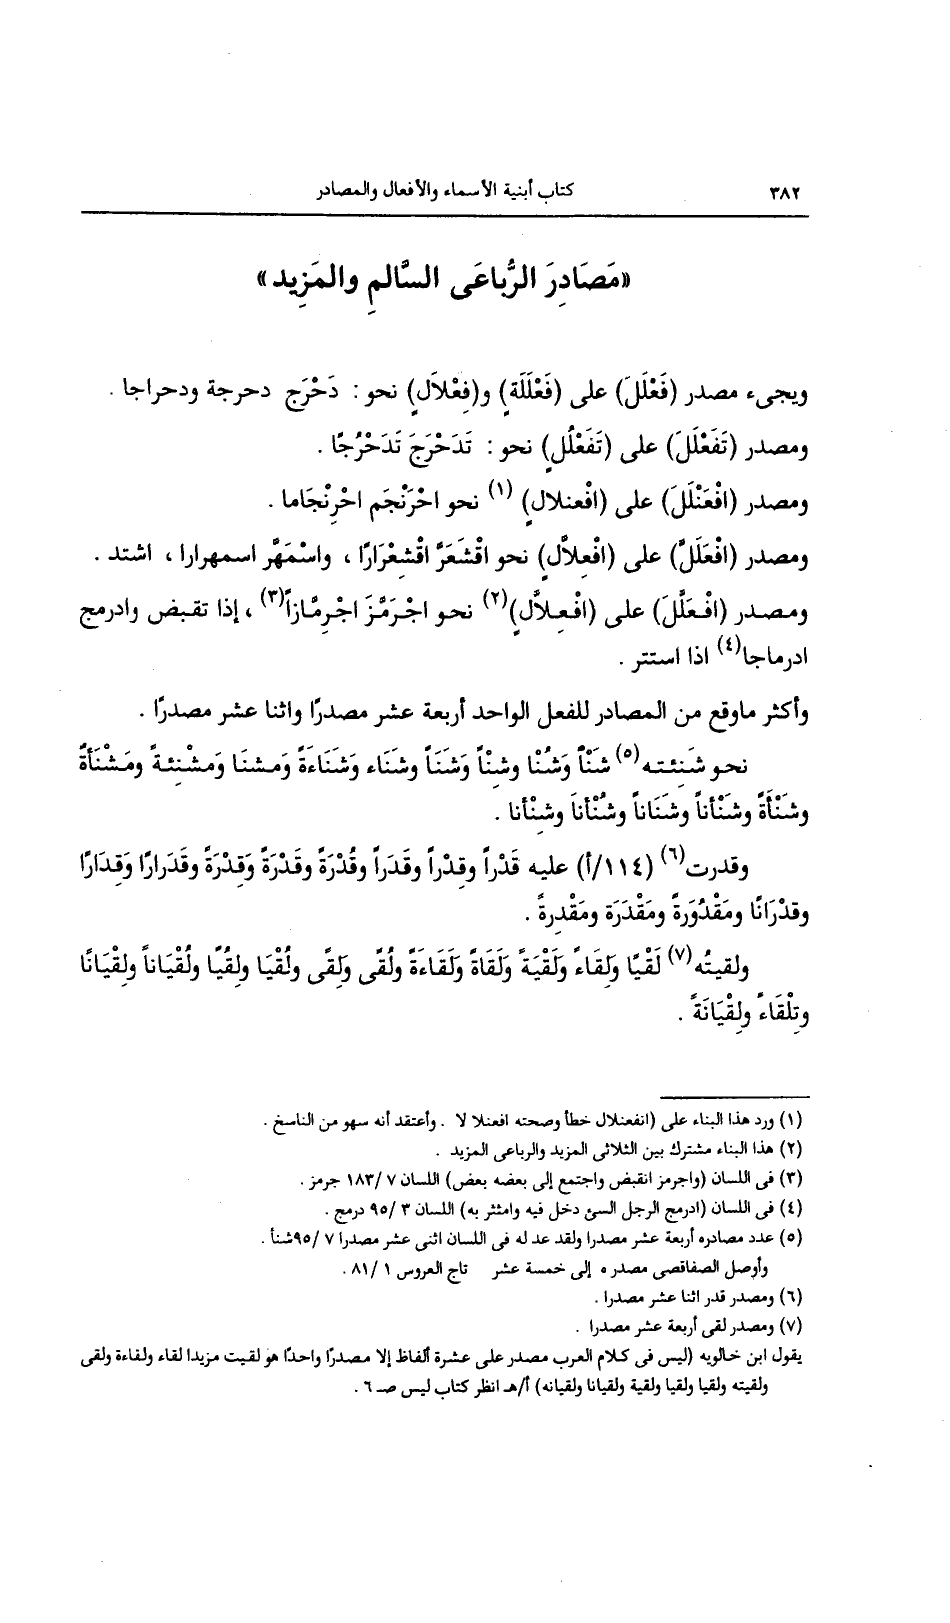 ٣٨٢
كتاب أبنية الأسماء والأفعال والمصادر
«مَصَادِرَ الرُّباعَى السَّالمِ والمَزِيد»
ويجىء مصدر (فَعْلَلَ) على (فَعْلَلَةٍ) و(فِعْلاَلٍ) نحو : دَحْرَج دحرجة ودحراجا .
ومصدر (تَفَعْلَلَ) على (تَفَعْلُلٍ) نحو : تَدَحْرَجَ تَدَحْرُجًا .
ومصدر (افْعَنْلَلَ) على (افْعنلالٍ) (١) نحو احْرَنْجَم احْرِنْجَاما .
ومصدر (افْعَلَلَّ) على (افْعِلاَّلٍ) نحو اقْشَعَرَّ اقْشِعْرَارًا ، واسْمَهَّر اسمهرارا ، اشتد .
ومصدر (افْعَلَّلَ) على (افْعِلاَّلٍ)(٢) نحو اجْرَمَّزَ اجْرِمَّازاً(٣) ، إذا تقبض وادرمج
ادرماجا(٤) اذا استتر .
وأكثر ماوقع من المصادر للفعل الواحد أربعة عشر مصدرًا واثنا عشر مصدرًا .
نحو شَنِئته(٥) شَنْأً وَشُنْا وشِنْاً وَشَنَاً وشنَاء وَشَنَاءَةً وَمشنَا وَمشْنِئةً ومَشْنَأةً
وشَنْأَةً وشَنْأناً وشَنَاناً وشُنْأناَ وشِنْأنا .
وقدرت(٦) (١١٤/أ) عليه قَدْراً وقِدْراً وقَدَراً وقُدْرَةً وقَدْرَةً وَقِدْرَةً وقَدَرارًا وَقِدَارًا
وقدْرَانًا ومَقْدُوَرةً ومَقْدَرَة ومَقْدِرةً .
ولقيتُه(٧) لَقْيًا وَلِقَاءً وَلَقْيَةً وَلَقَاةً وَلَقَاءَةً ولُقًى وَلِقًى ولُقْيَا ولِقُيًا ولُقْيَاناً ولِقْيَانًا
وتِلْقَاءً ولِقْيَانَةً .
(١) ورد هذا البناء على (انفعنلال خطأ وصحته افعنلا لا . وأعتقد أنه سهو من الناسخ .
(٢) هذا البناء مشترك بين الثلاثى المزيد والرباعى المزيد .
(٣) فى اللسان (واجرمز انقبض واجتمع إلى بعضه بعض) اللسان ٧ /١٨٣ جرمز .
(٤) فى اللسان (ادرمج الرجل السئ دخل فيه وامتثر به) اللسان ٣ /٩٥ درمج .
(٥) عدد مصادره أربعة عشر مصدرا ولقد عد له فى اللسان اثنى عشر مصدرا ٧ /٩٥شنأ .
وأوصل الصفاقصى مصدره إلى خمسة عشر تاج العروس ١ /٨١ .
(٦) ومصدر قدر اثنا عشر مصدرا .
(٧) ومصدر لقى أربعة عشر مصدرا .
يقول ابن خالويه (ليس فى كلام العرب مصدر على عشرة ألفاظ إلا مصدرًا واحدًا هو لقيت مزيدا لقاء ولقاءة ولقى
ولقيته ولقيا ولقيا ولقية ولقيانا ولقيانه) أ/هـ انظر كتاب ليس صـ ٦ .